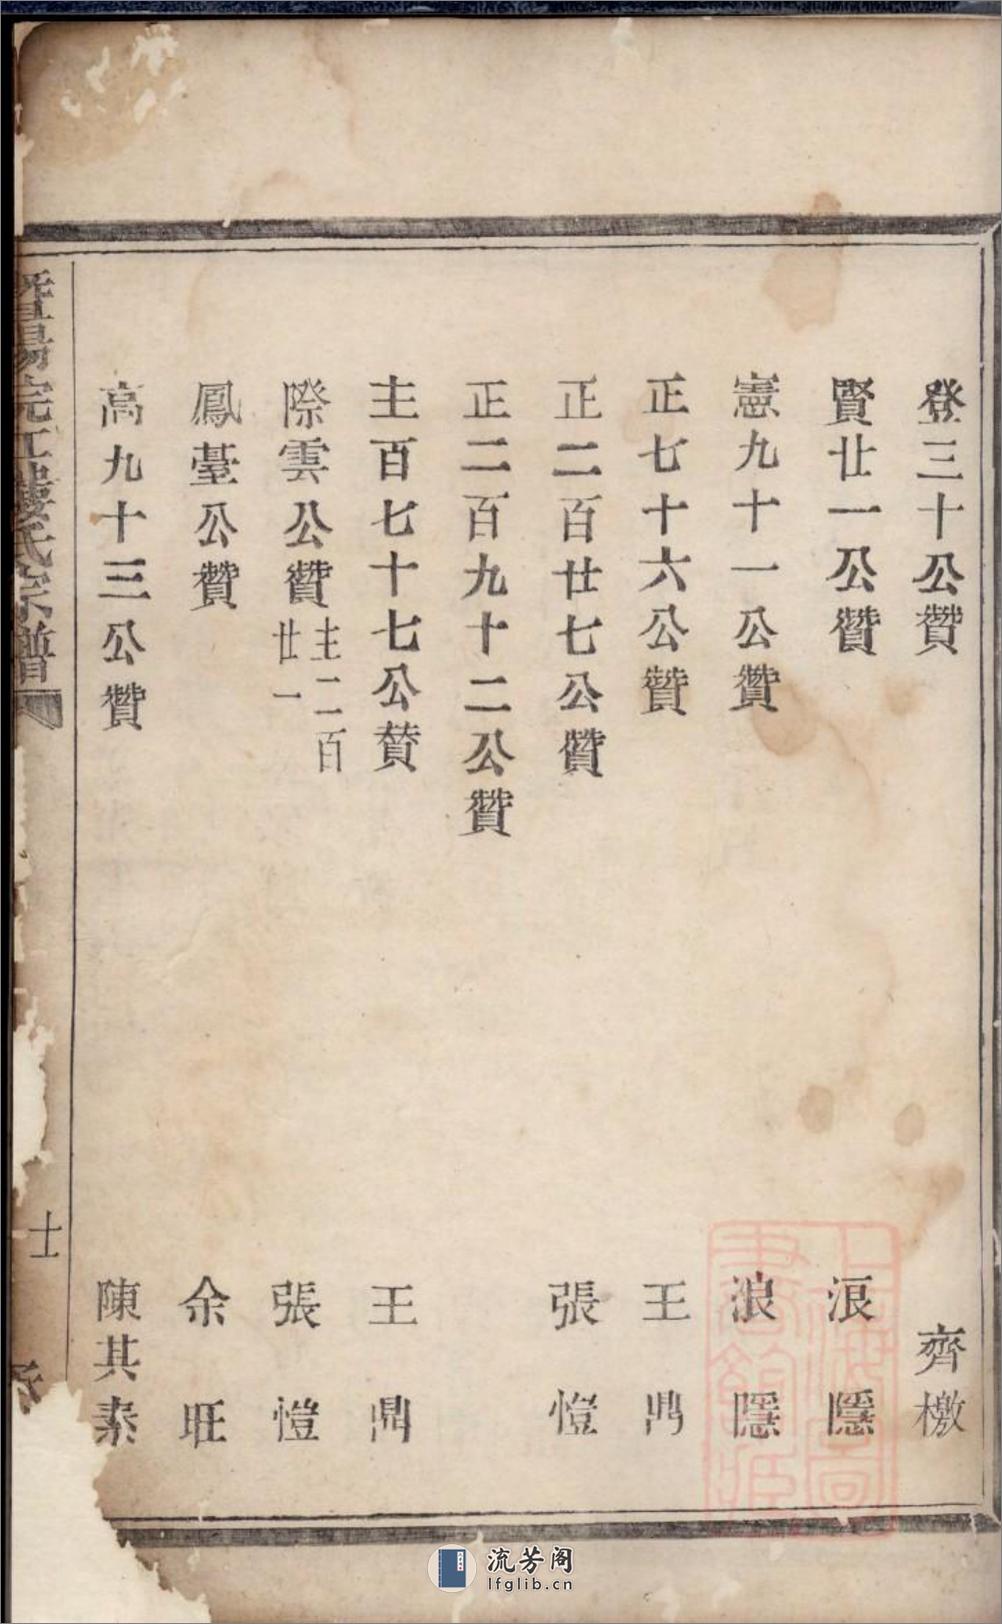 登三十公贊 齊檄
賢廿一公贊 浪隱
憲九十一公贊 浪隱
正七十六公贊 王鼎
正二百廿七公贊 張愷
正二百九十二公贊
主百七十七公賛 王鼎
際雲公贊 主二百廿一 張愷
鳳臺公贊 余旺
高九十三公贊 陳其泰
暨陽浣江樓氏宗譜
流芳阁
lfglib.cn